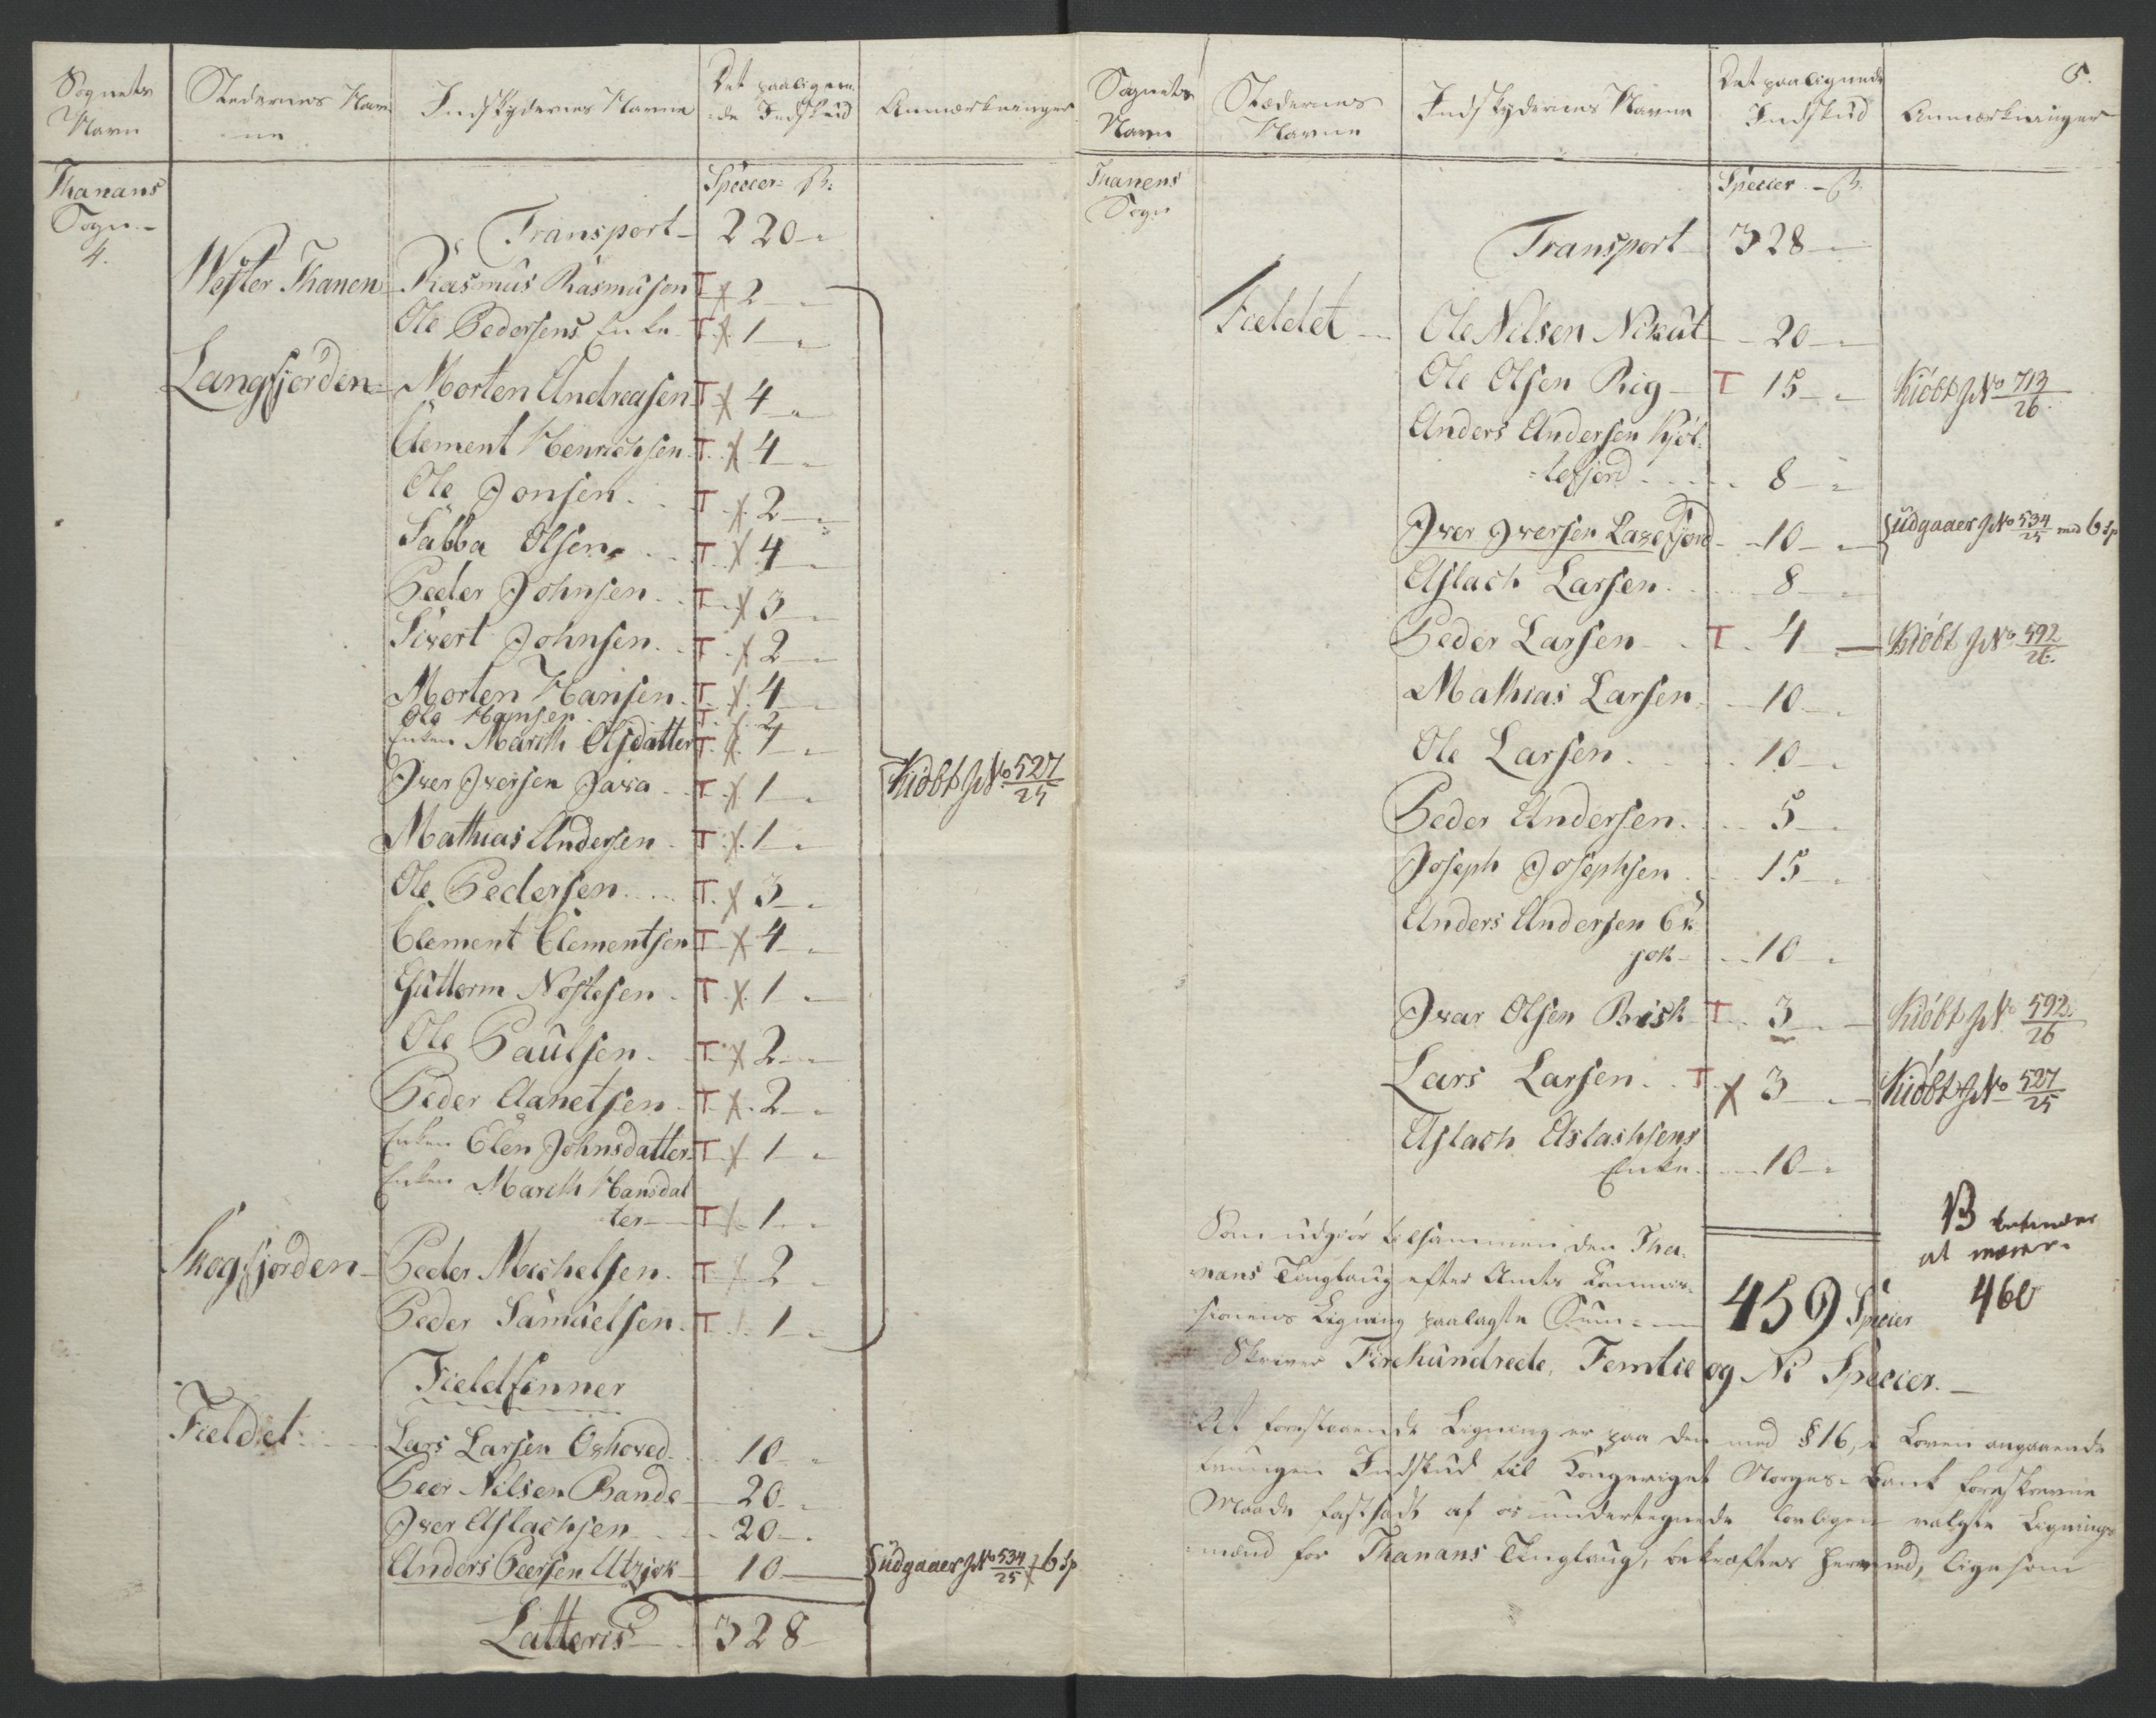 Sognets Navn | Stedernes Navne | Indskydernes Navne | Det paalignede Indskud | Anmærkninger
Thanans Sogn 4. | Species ß:
Transport 220
Wester Thanen Rasmus Rasmusen T X 2
Ole Pedersens Enke T X 1
Langfjorden Morten Andreasen T X 4
Clement Henrichsen T X 4
Ole Jonsen T X 2
Sabba Olsen T X 4
Peder Johnsen T X 3
Sivert Johnsen T X 2
Morten Hansen T X 4
Ole Hansen T X 2
Enken Marith Olsdatter T X 1
Iver Iversen Java T X 1
Mathias Andersen T X 1
Ole Pedersen T X 3
Clement Clementsen T X 4
Guttorm Nostesen T X 1
Ole Paulsen T X 2
Peder Aanetsen T X 2
Enken Elen Johnsdatter T X 1
Enken Marith Hansdat
ter T X 1
Skogfjorden Peder Michelsen T X 2
Peder Samuelsen T 1
Kiöbt JNo 527/25
Fieldfinner
Fieldet Lars Larsen Oxhoved 10
Peer Nilsen Bande 20
Iver Aslachsen 20
Anders Peersen Utzjok 10 Udgaaer JNo 534/25 6 Sp
Latteris 328
5.
Sognets Navn | Stædernes Navne | Indskydernes Navne | Det paalignede Indskud | Anmærkninger
Thanens Sogn | Species ß.
Transport 328
Fieldet Ole Nilsen Nikut 20
Ole Olsen Rig T 15 Kiöbt JNo 713/26
Anders Andersen Kjöl-
lefjord 8
Iver Iversen Laxefjord 10 Udgaaer JNo 534/25 med 6 Sp
Aslach Larsen 8
Peder Larsen T 4 Kiöbt JNo 592/26
Mathias Larsen 10
Ole Larsen 10
Peder Andersen 5
Joseph Josephsen 15
Anders Andersen
jok 10
Ivar Olsen Brisk T 3 Kiöbt JNo 592/26
Lars Larsen T X 3 Kiöbt JNo 527/25
Aslach Aslachsens
Enke 10
Som udgiör tilsammen den Tha-
nans Tinglaug efter Amts Commis-
sionens Ligning paalagte Sum 459 Specier
befindes
at være
460
Skriver Firehundrede, Femtie og Ni Specier.
At forestaaende Ligning er paa den med § 16, i Loven angaaende
tvungen Indskud til Kongeriget Norges Bank foreskrevne
Maade fastsadt af os undertegnede lovligen valgte Lignings
mænd for Thanans Tinglaug, bekræftes herved, ligesom